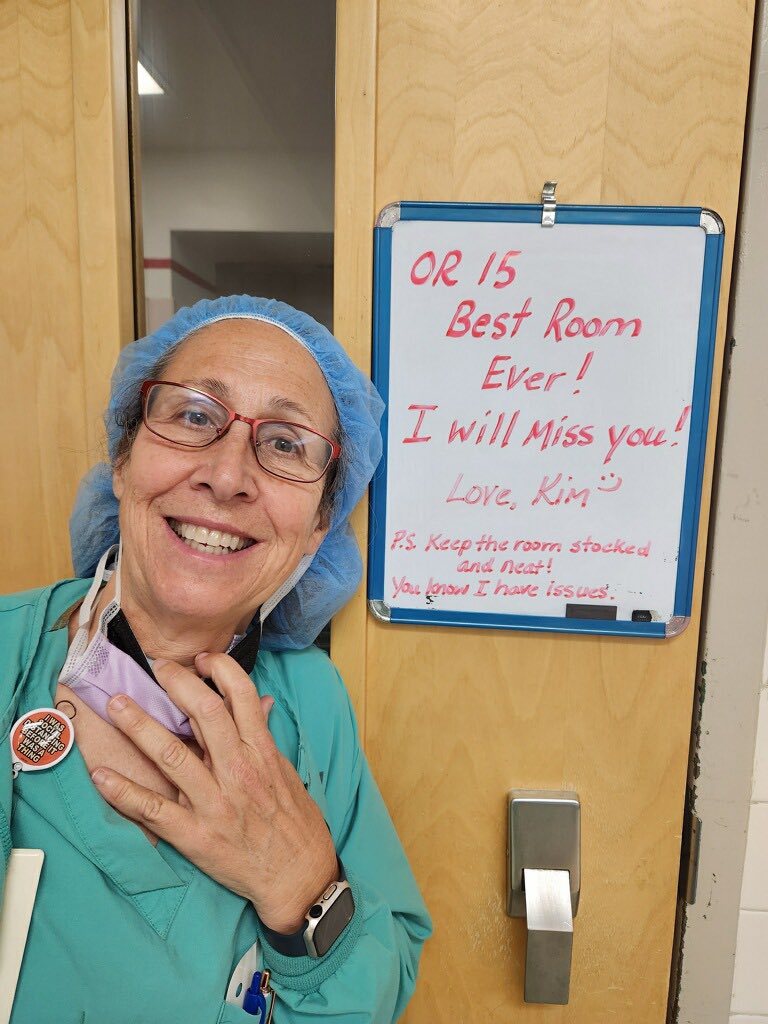 OR 15
Best Room
Ever!
I will Miss you!
Love, Kim
P.S. Keep the room stocked
and neat!
You know I have issues.
I WAS
SOCIAL
DISTANCING
BEFORE IT
WAS A
THING